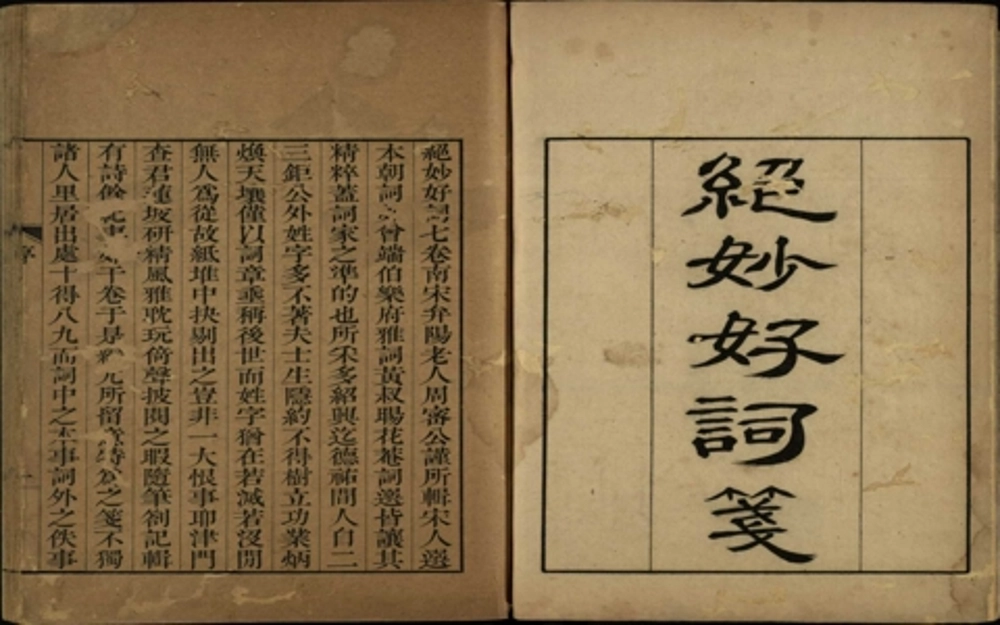 絕妙好詞箋
絕妙好詞七卷南宋弁陽老人周密公謹所輯宋人選
本朝詞曾端伯樂府雅詞黃叔暘花菴詞選皆讓其
精粹蓋詞家之準的也所采多紹興迄德祐間人自二
三鉅公外姓字多不著夫士生隱約不得樹立功業炳
煥天壤僅以詞章垂稱後世而姓字猶在若滅若沒間
無人爲從故紙堆中抉剔出之豈非一大恨事耶津門
查君蓮坡研精風雅耽玩倚聲披閱之暇隨筆劄記輯
有詩餘干卷于是所留之箋不獨
諸人里居出處十得八九而詞中之本事詞外之佚事
序
一